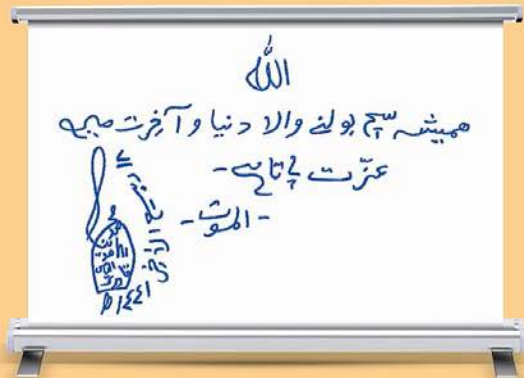 الله
ہمیشہ سچ بولنے والا دنیا و آخرت میں
عزّت پاتا ہے۔
- الموت -
١٤٤١ھ